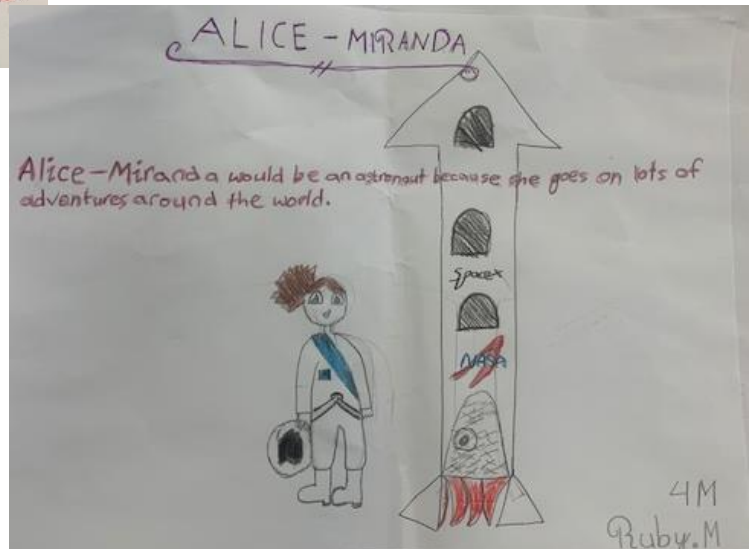 ALICE - MIRANDA
Alice-Miranda would be an astronaut because she goes on lots of
adventures around the world.
SpaceX
NASA
4M
Ruby.M